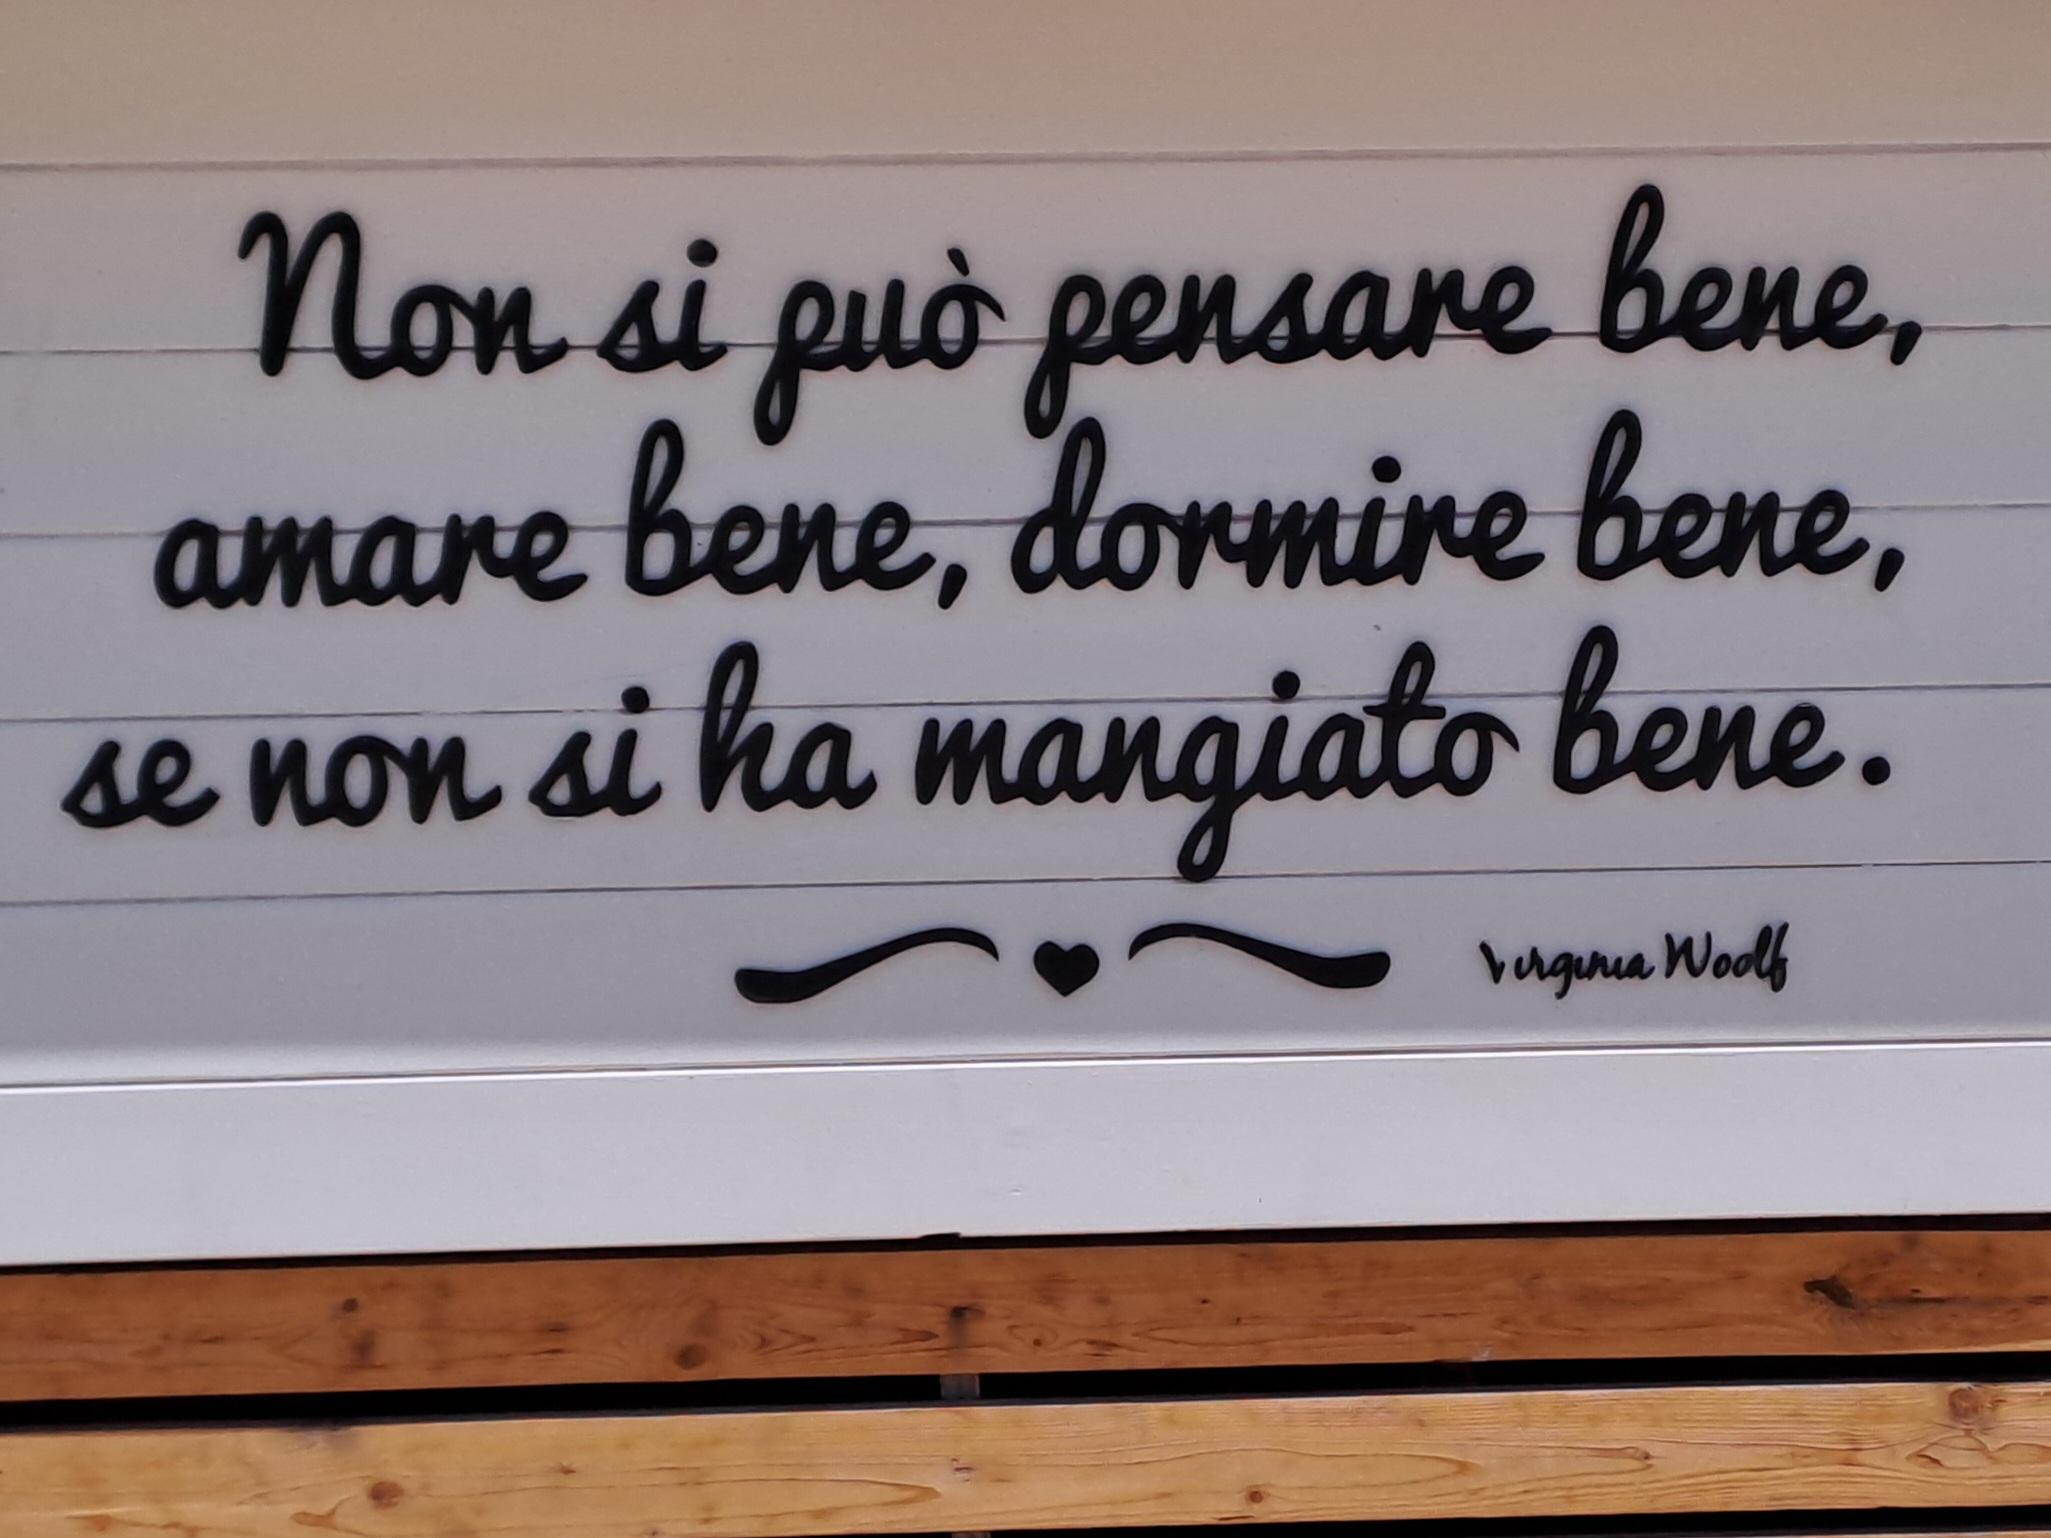 Non si può pensare bene,
amare bene, dormire bene,
se non si ha mangiato bene.
Virginia Woolf